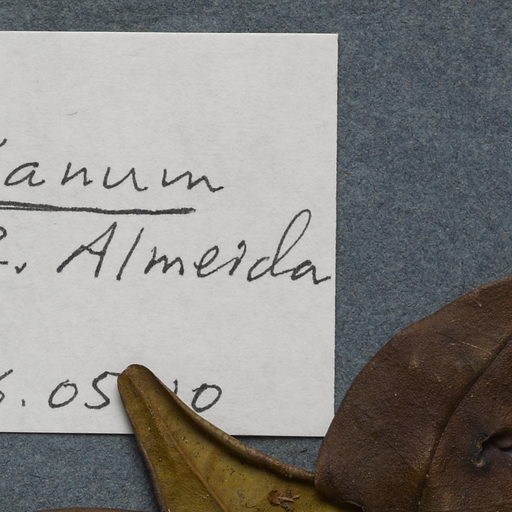 ianum
R. Almeida
6.05.10